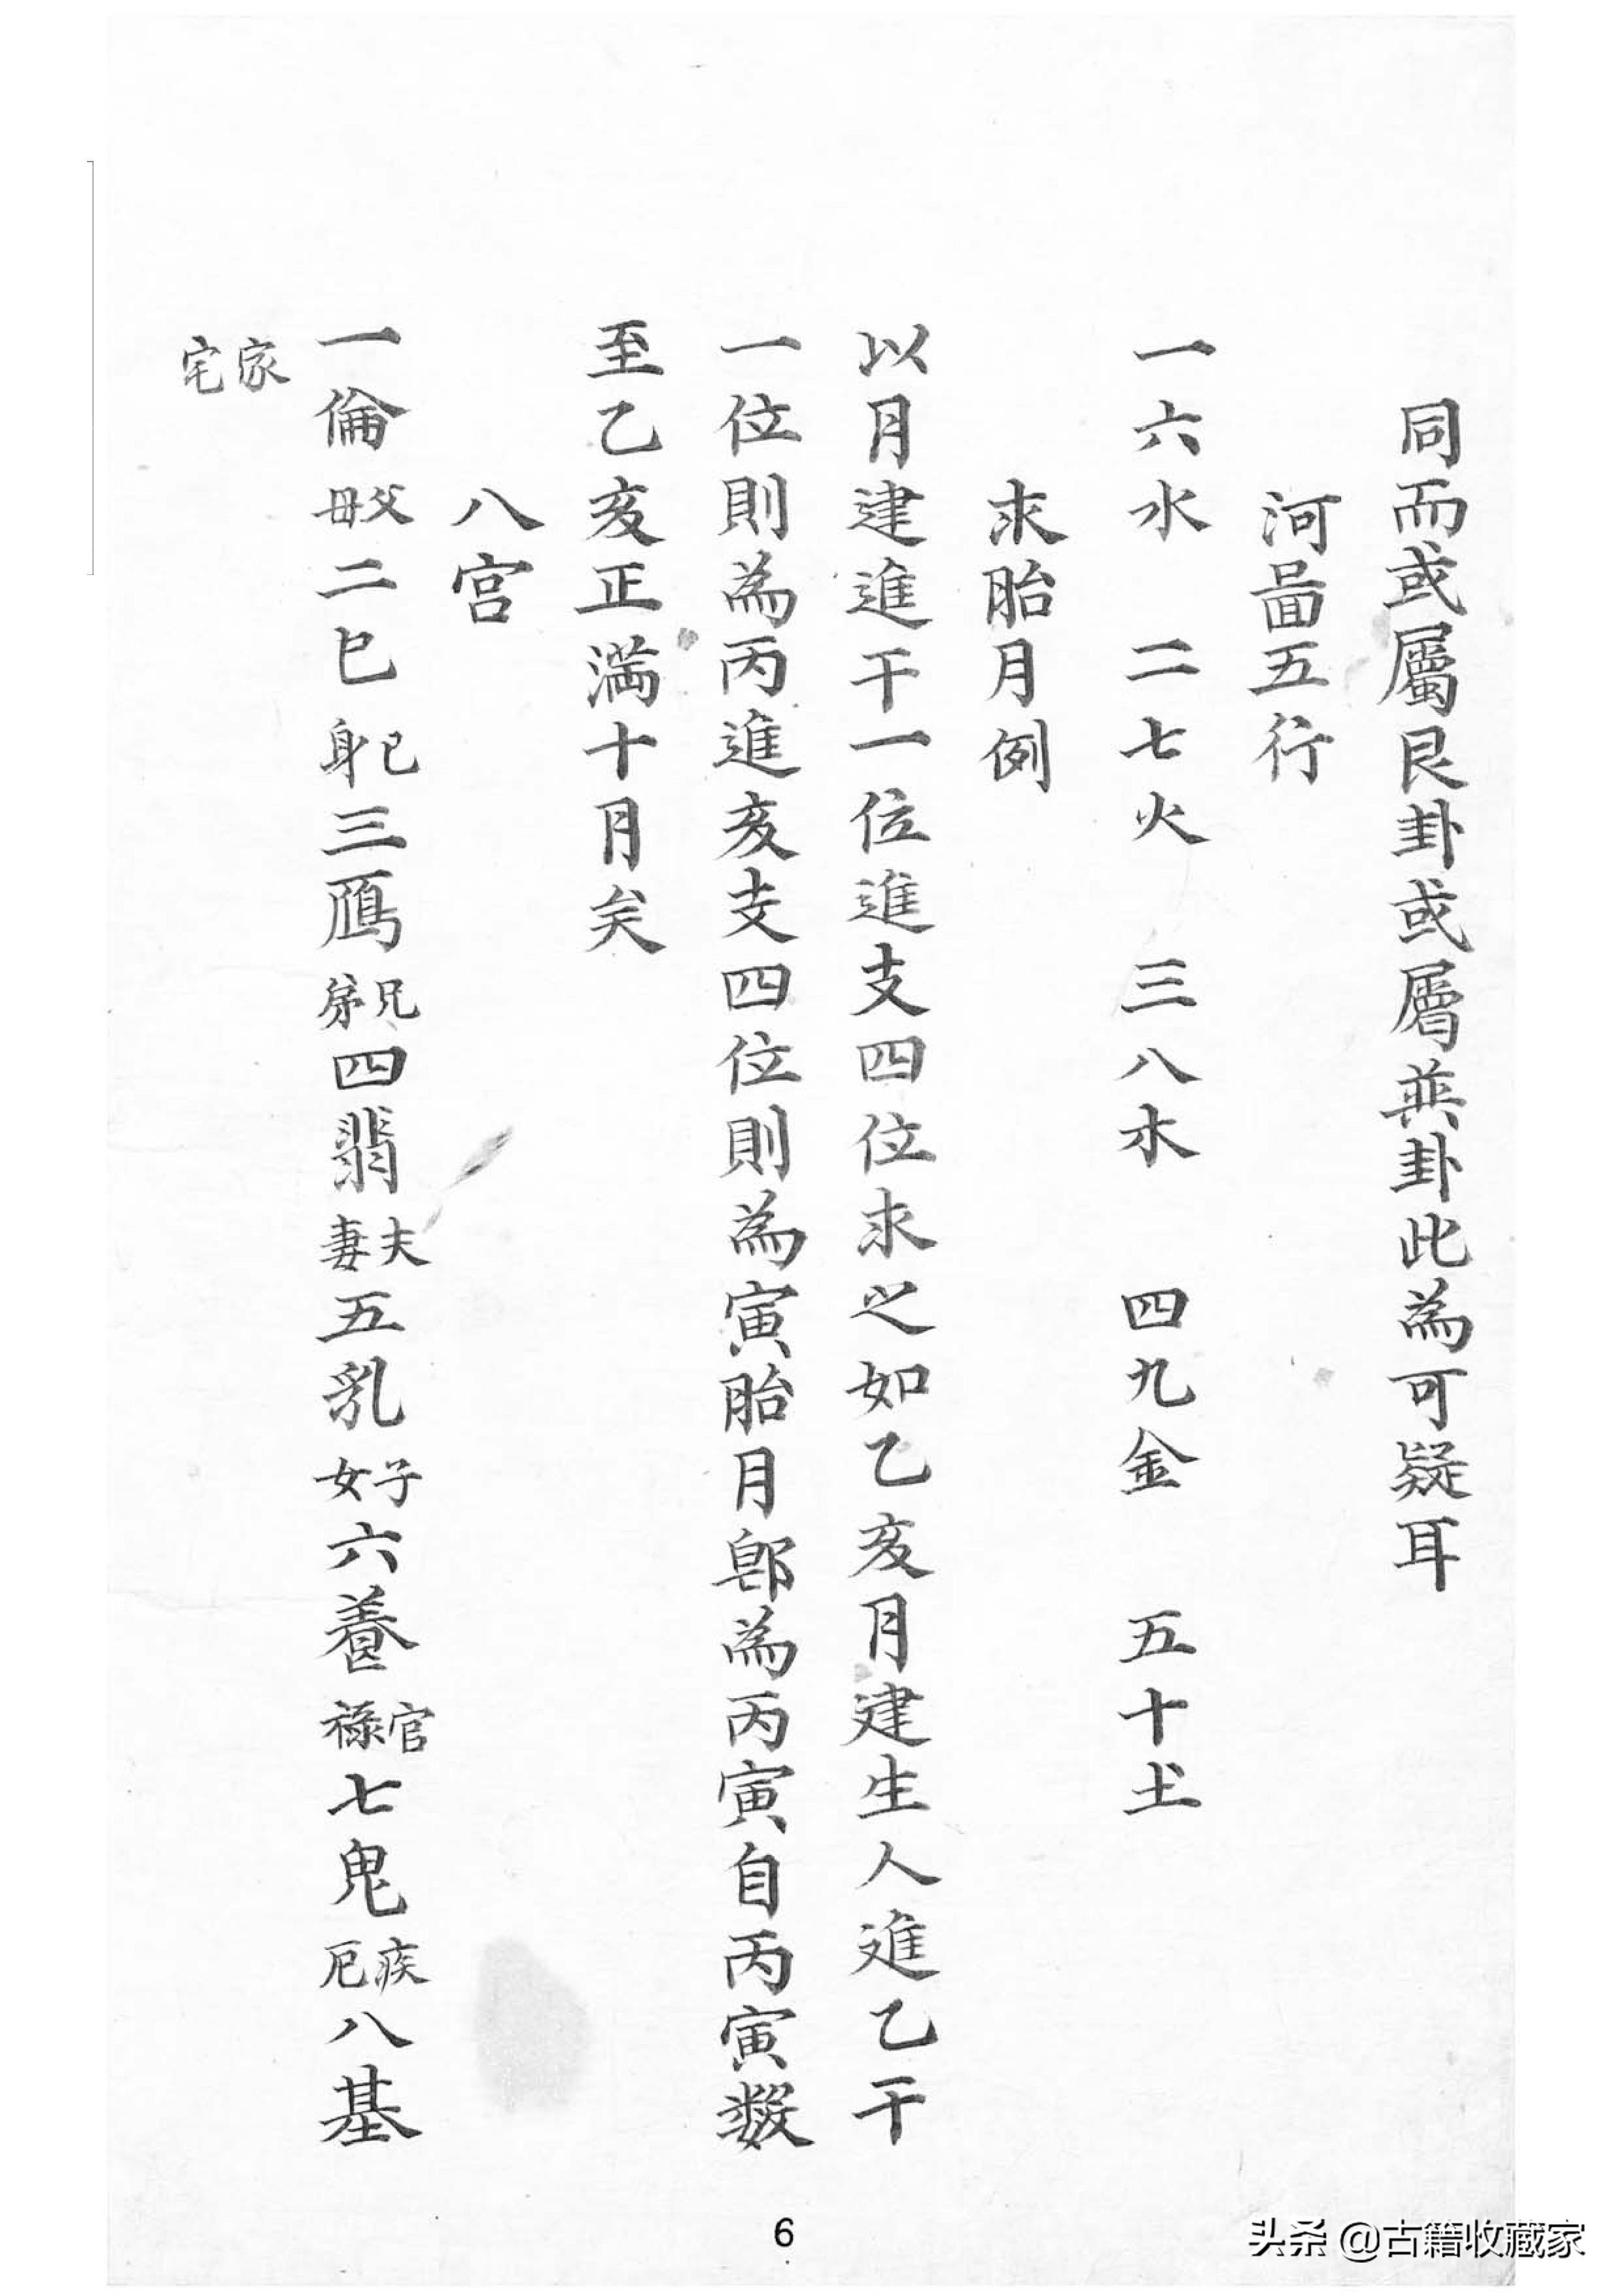 同而或屬艮卦或屬巽卦此為可疑耳
河啚五行
一六水 二七火 三八木 四九金 五十土
求胎月例
以月建進干一位進支四位求之如乙亥月建生人進乙干
一位則為丙進亥支四位則為寅胎月即為丙寅自丙寅數
至乙亥正滿十月矣
八宮
一倫父母二已己身三鴈兄弟四翡夫妻五乳子女六養官祿七鬼疾厄八基
家宅
6
头条 @古籍收藏家